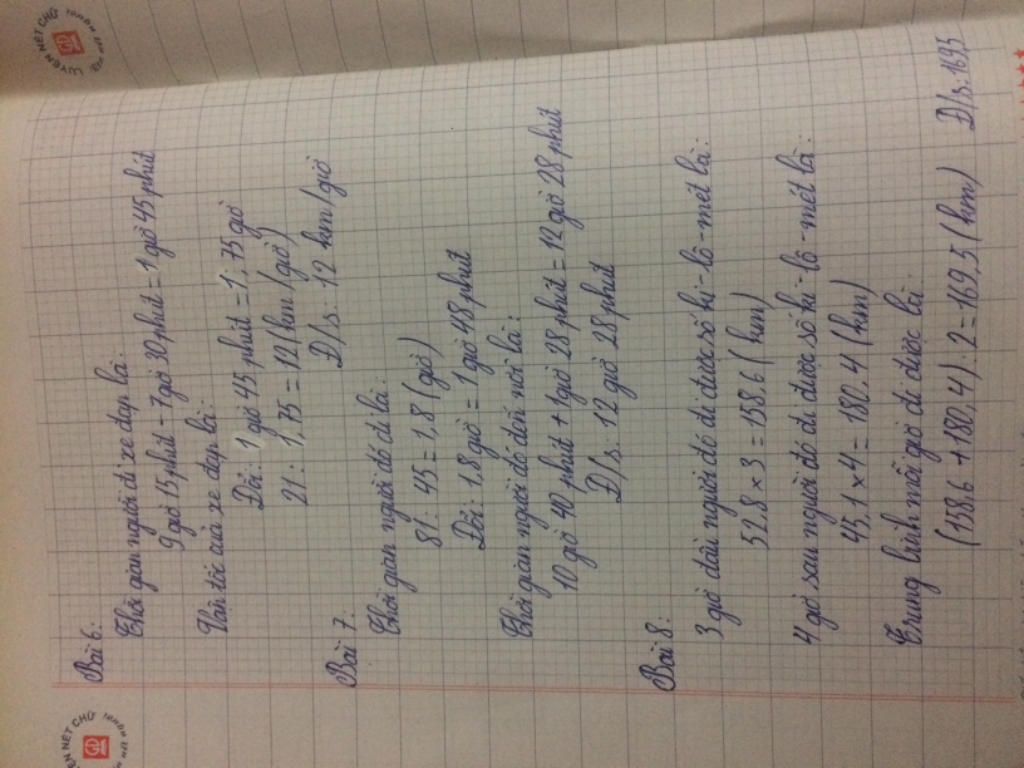 Bài 6:
Thời gian người đi xe đạp là:
9 giờ 15 phút - 7 giờ 30 phút = 1 giờ 45 phút
Vận tốc của xe đạp là:
Đổi: 1 giờ 45 phút = 1,75 giờ
21 : 1,75 = 12 (km/giờ)
Đ/s: 12 km/giờ
Bài 7:
Thời gian người đó đi là:
81 : 45 = 1,8 (giờ)
Đổi: 1,8 giờ = 1 giờ 48 phút
Thời gian người đó đến nơi là:
10 giờ 40 phút + 1 giờ 28 phút = 12 giờ 28 phút
Đ/s: 12 giờ 28 phút
Bài 8:
3 giờ đầu người đó đi được số ki-lô-mét là:
52,8 × 3 = 158,6 (km)
4 giờ sau người đó đi được số ki-lô-mét là:
45,1 × 4 = 180,4 (km)
Trung bình mỗi giờ đi được là:
(158,6 + 180,4) : 2 = 169,5 (km)
Đ/s: 169,5
LUYỆN NÉT CHỮ
YỆN NÉT CHỮ